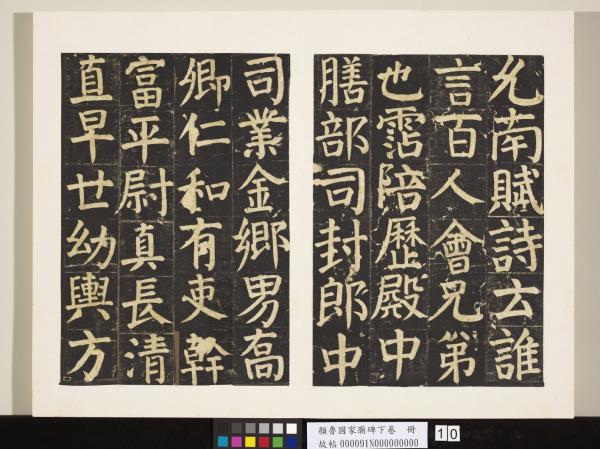 允南賦詩云誰
言百人會兄弟
也霑陪歷殿中
膳部司封郎中
司業金鄉男高
卿仁和有吏幹
富平尉真長清
直早世幼輿方
顏魯國家廟碑下卷 冊
故帖000091N000000000
10